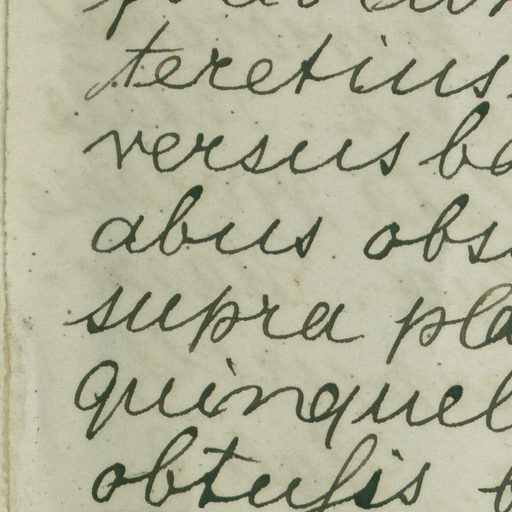 teretius
versus ba
abus obs
supra pla
quinquel
obtusis